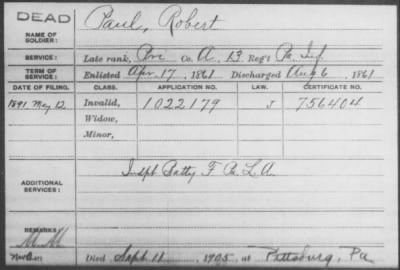 DEAD
Paul, Robert
NAME OF SOLDIER:
SERVICE: Late rank, Pvt Co. A, 13 Reg't Pa. Inf.
TERM OF SERVICE: Enlisted Apr. 17, 1861 Discharged Aug 6, 1861
DATE OF FILING. CLASS. APPLICATION NO. LAW. CERTIFICATE NO.
1891 May 12 Invalid, 1022179 J 756404
Widow,
Minor,
ADDITIONAL SERVICES: Indpt Batty F Pa L.A.
REMARKS:
Died Sept. 11 1905, at Pittsburg, Pa